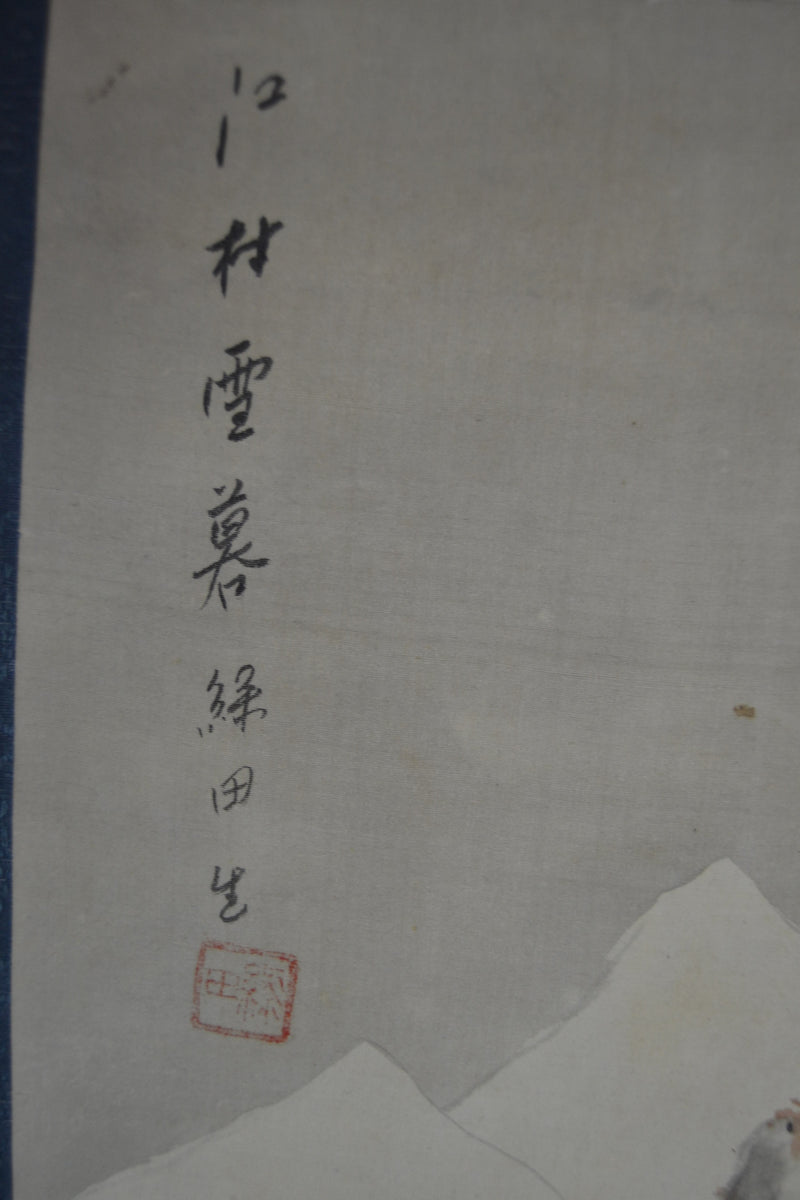 江村雪暮 緑田生
緑田